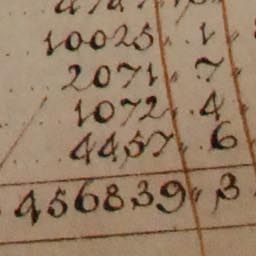 10025 " 1
2071 " 7
1072 " 4
4457 " 6
456839 " 3